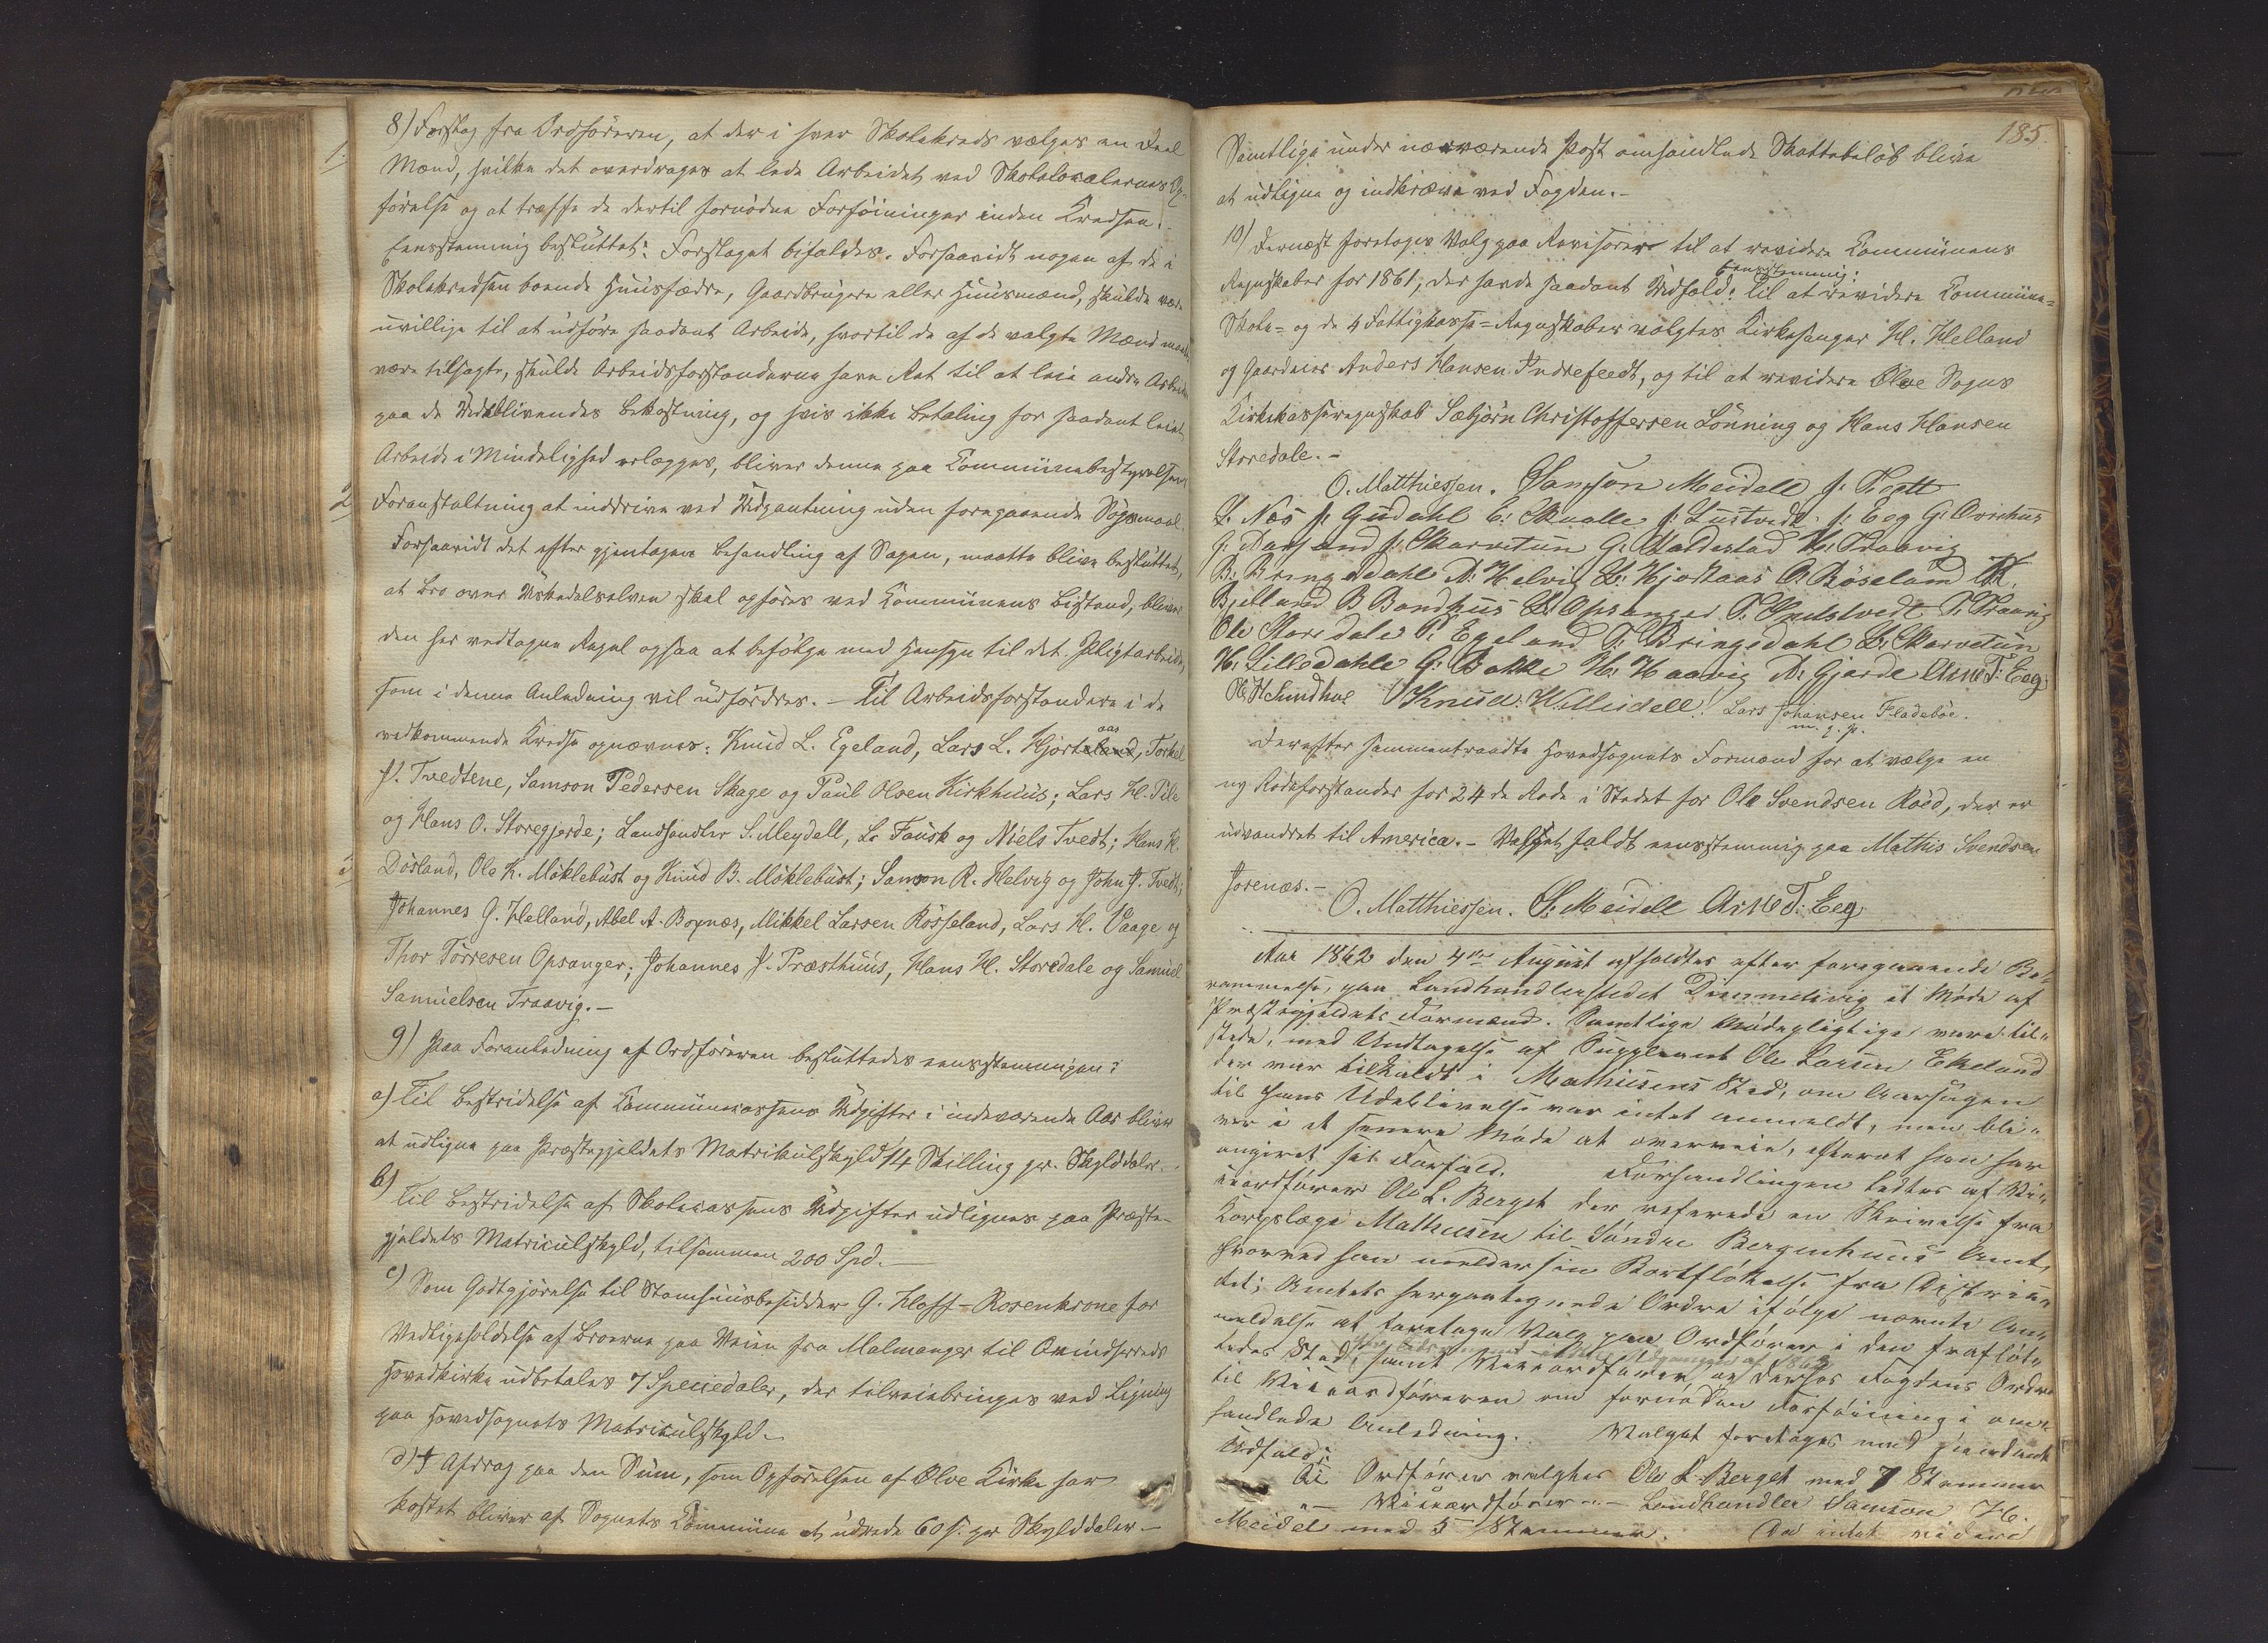 8) Forslag fra Ordföreren, at der i hver Skolekreds vælges en Deel
1.
Mænd, hvilke det overdrages at lede Arbeidet ved Skolelocalernes Op-
förelse og at træffe de dertil fornödne Forföininger inden Kredsen.
Eensstemmig besluttet: Forslaget bifaldes. Forsaavidt nogen af de i
Skolekredsen boende Huusfædre, Gaardbrugere eller Huusmænd, skulde være
uvillige til at udföre saadant Arbeide, hvortil de af de valgte Mænd maatte
være tilsagte, skulde Arbeidsforstanderne have Ret til at leie andre Arbeidere
paa de Udeblivendes Bekostning, og hvis ikke Betaling for saadant leiet
Arbeide i Mindelighed erlægges, bliver denne paa Communebestyrelsens
2
Foranstaltning at inddrive ved Udpantning uden foregaaende Sögsmaal.
Forsaavidt det efter gjentagen Behandling af Sagen, maatte blive besluttet,
at Bro over Uskedalselven skal opföres ved Communens Bistand, bliver
den her vedtagne Regel ogsaa at befölge med Hensyn til det Pligtarbeide,
som i denne Anledning vil udfordres. – Til Arbeidsforstandere i de
vedkommende Kredse opnævnes: Knud L. Egeland, Lars L. Hjortaas, Torkel
P. Tvedtene, Samson Pedersen Skage og Paul Olsen Kirkhuus; Lars H. Pile
og Hans O. Storegjerde; Landhandler S. Meydell, L. Fausk og Niels Tvedt; Hans H.
3
Dösland, Ole K. Möklebust og Knud B. Möklebust; Samson R. Helvig og John J. Tvedt;
Johannes G. Helland, Abel A. Bognæs, Mikkel Larsen Rösseland, Lars H. Vaage og
Thor Torresen Opsanger; Johannes J. Præsthuus, Hans H. Storedale og Samuel
Samuelsen Traavig. –
9) Paa Foranledning af Ordföreren besluttedes eensstemmigen:
a) Til Bestridelse af Communecassens Udgifter i indeværende Aar bliver
at udligne paa Præstegjeldets Matrikulskyld 14 Skilling pr. Skylddaler.
b)
Til Bestridelse af Skolecassens Udgifter udlignes paa Præste-
gjeldets Matriculskyld, tilsammen 200 Spd. –
c) Som Godtgjörelse til Stamhuusbesidder G. Hoff-Rosenkrone for
Vedligeholdelse af Broerne paa Veien fra Malmanger til Qvindherreds
Hovedkirke udbetales 7 Speciedaler, der tilveiebringes ved Ligning
paa Hovedsognets Matriculskyld. –
d) I Afdrag paa den Sum, som Opförelsen af Ølve Kirke har
kostet bliver af Sognets Commune at udrede 60 s. pr Skylddaler –
185.
Samtlige under nærværende Post omhandlede Skattebelöb blive
at udligne og indkræve ved Fogden. –
10) Dernæst foretoges Valg paa Revisorer til at revidere Communens
Regnskaber for 1861; der havde saadant Udfald: Eensstemmig: Til at revidere Commune-
Skole- og de 4 Fattigkasse-Regnskaber valgtes Kirkesanger H. Helland
og Gaardeier Anders Hansen Indrefeedt, og til at revidere Ølve Sogns
Kirkekasseregnskab Sæbjörn Christoffersen Lönning og Hans Hansen
Storedale. –
O. Matthiessen. Samson Meidell
L. Næs J. Gudahl E. Skaalle J. Lustvedt J. Eeg G. Ovrehus
J. Skarvetun G. Haldestad H. Traavig
B. Bringedahl A. Helvig L. Hjortaas O. Röseland
Bjelland B Bondhus L. Opsanger T. Traavig
Ole Storedale P. Egeland T. Bringedahl L. Skarvetun
H. Lilledahle G. Bakke H. Haavig A. Gjerde Arne T. Eeg
Knud K. Meidell. Lars Johansen Fladebøe.
m. p. P.
Derefter sammentraadte Hovedsognets Formænd for at vælge en
ny Rodeforstander for 24de Rode i Stedet for Ole Svendsen Röed, der er
udvandret til America. – Valget faldt eensstemmig paa Mathis Svendsen
Porenæs. –
O. Matthiessen. S. Meidell Arne T. Eeg
Aar 1862 den 4de August afholdtes efter foregaaende Be-
rammelse, paa Landhandlerstedet Dimmelsvig et Möde af
Præstegjeldets Formænd. Samtlige Mödepligtige vare til-
stede, med Undtagelse af Suppleant Ole Larsen Ekeland
der var tilkaldt i Mathiesens Sted, om Aarsagen
til hans Udeblivelse var intet anmeldt, men bli-
ver i et senere Möde at overveie, efterat han har
angivet sit Forfald. Forhandlingen ledtes af Vi-
ceordförer Ole L. Berget der refererede en Skrivelse fra
Korpslæge Mathiesen til Söndre Bergenhuus Amt,
hvorved han melder sin Bortflyttelse fra Distric-
tet; Amtets herpaategnede Ordre ifölge nævnte An-
meldelse at foretage Valg paa Ordförer i den fraflyt-
tedes Sted, samt Viceordförer og derhos Fogdens Ordre
til Viceordföreren om fornöden Forföining i om-
handlede Anledning. Valget foretoges med fölgende
Udfald:
Til Ordförer valgtes Ole L. Berget med 7 Stemmer
" – Viceordförer – " – Landhandler Samson H.
Meidel med 5 Stemmer. Da intet videre